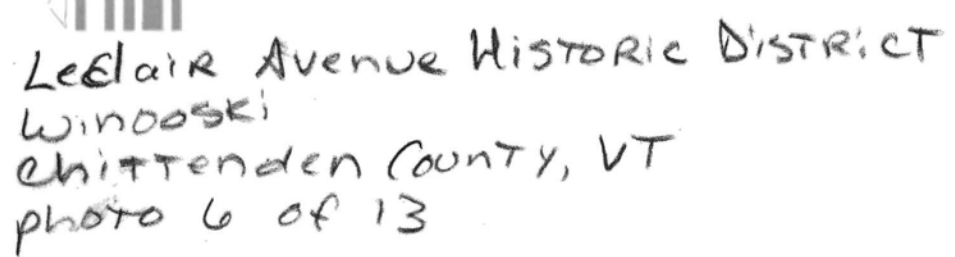 LeClair Avenue Historic District
Winooski
Chittenden County, VT
photo 6 of 13